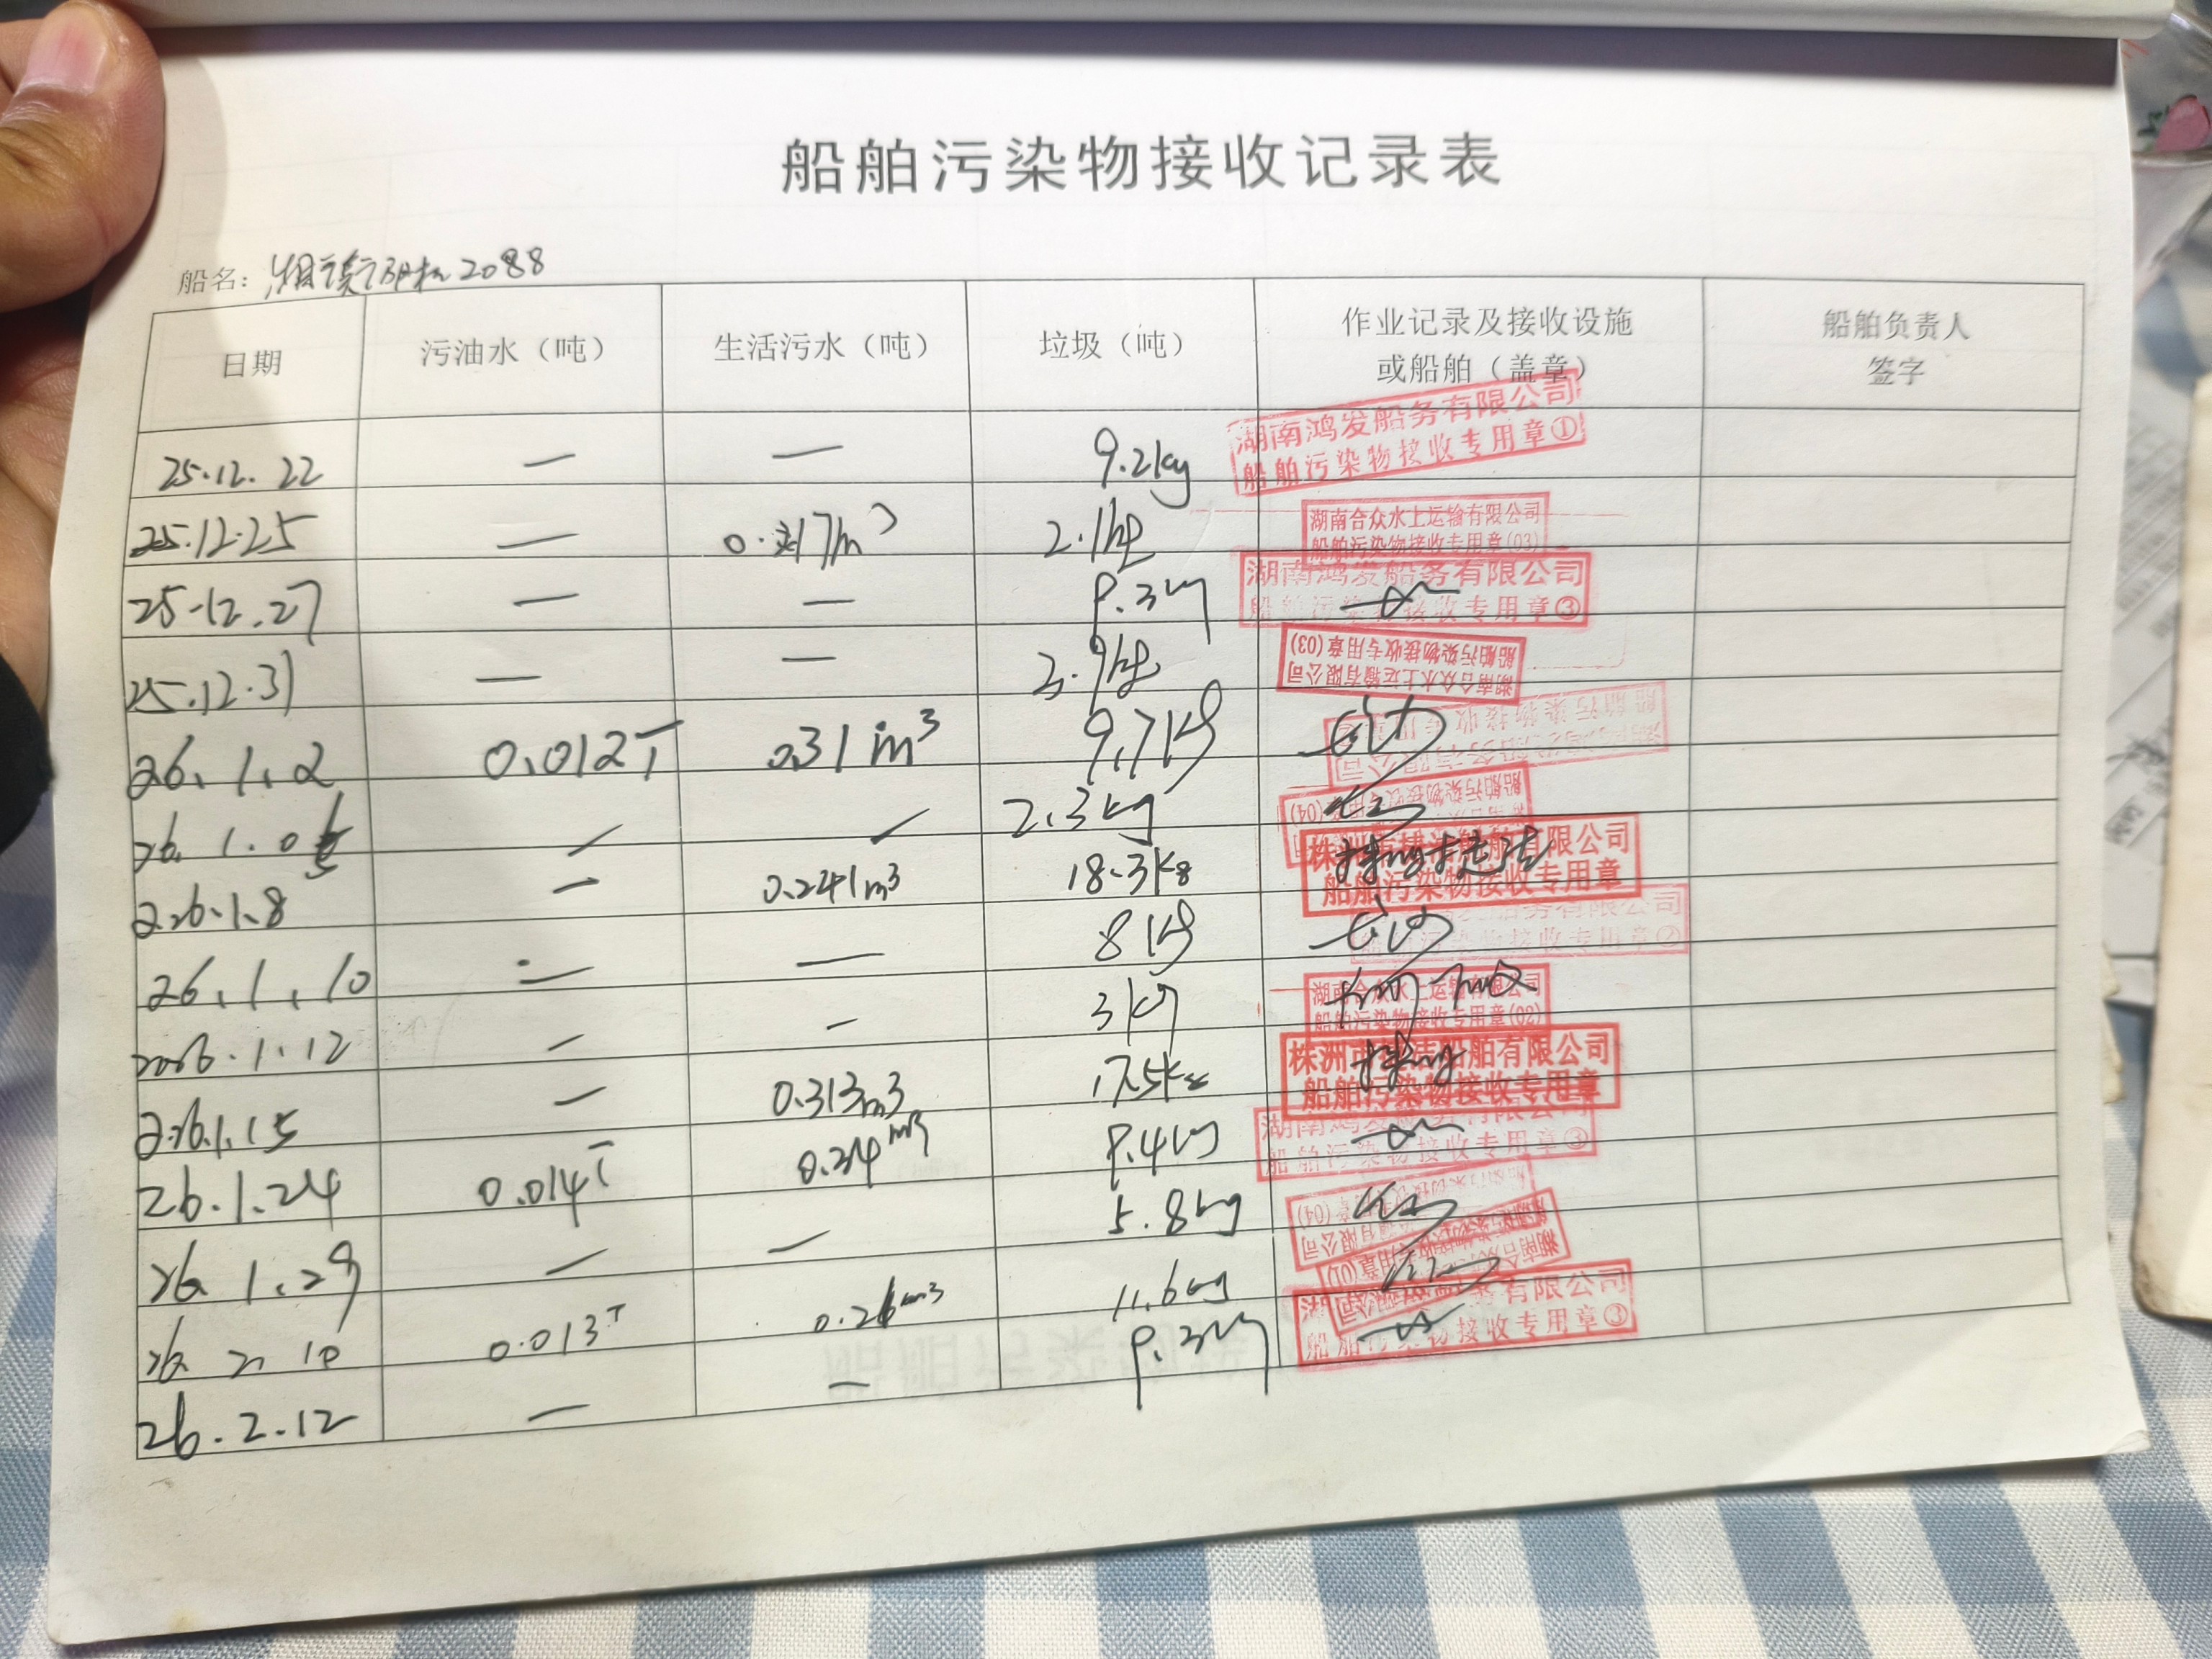 船舶污染物接收记录表
船名: 2088
日期 污油水（吨） 生活污水（吨） 垃圾（吨） 作业记录及接收设施或船舶（盖章） 船舶负责人签字
25.12.22 — — 9.2kg 湖南鸿发船务有限公司 船舶污染物接收专用章①
25.12.25 — 2.1kg 湖南合众水上运输有限公司 船舶污染物接收专用章(03)
25.12.27 — — 湖南鸿发船务有限公司 船舶污染物接收专用章③
25.12.31 — — 湖南合众水上运输有限公司 船舶污染物接收专用章(03)
26.1.2 0.012T 0.31m³ 9.7kg
— — 2.3kg (04)
2026.1.8 — 0.241m³ 18.3kg 船舶污染物接收专用章
26.1.10 — — 8kg 船舶污染物接收专用章②
2026.1.12 — — 3kg 湖南合众水上运输有限公司 船舶污染物接收专用章(02)
2026.1.15 — 0.313m3 17.5kg 船舶污染物接收专用章
26.1.24 0.014T 湖南鸿发船务有限公司 船舶污染物接收专用章③
26.1.29 — — 5.8kg (04)
26.2.10 0.013T 11.6kg
26.2.12 — — 船舶污染物接收专用章③